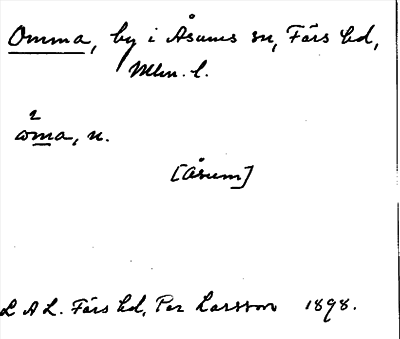 Omma, by i Åsums sn, Färs hd,
Mlm. l.
2
oma, n.
[Åsum]
L A L. Färs hd, Per Larsson 1898.